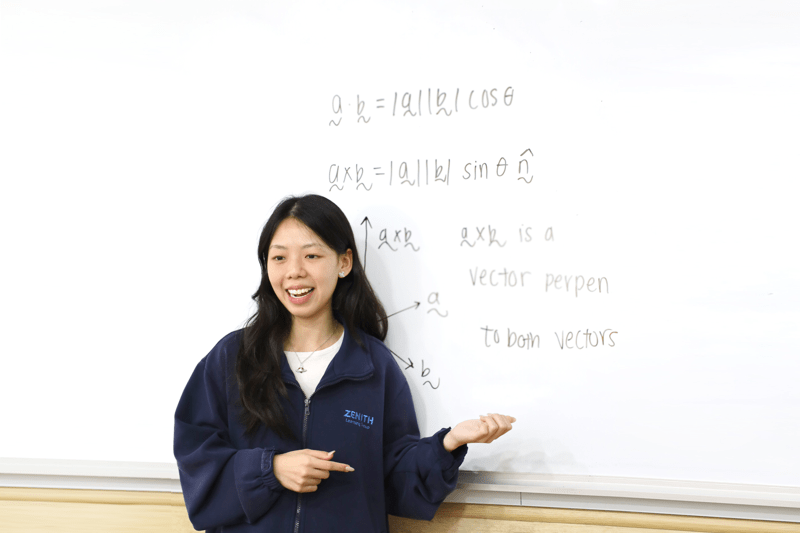 a · b = |a||b| cos θ
a × b = |a||b| sin θ n̂
a × b
a × b is a
vector perpen
a
to both vectors
b
ZENITH